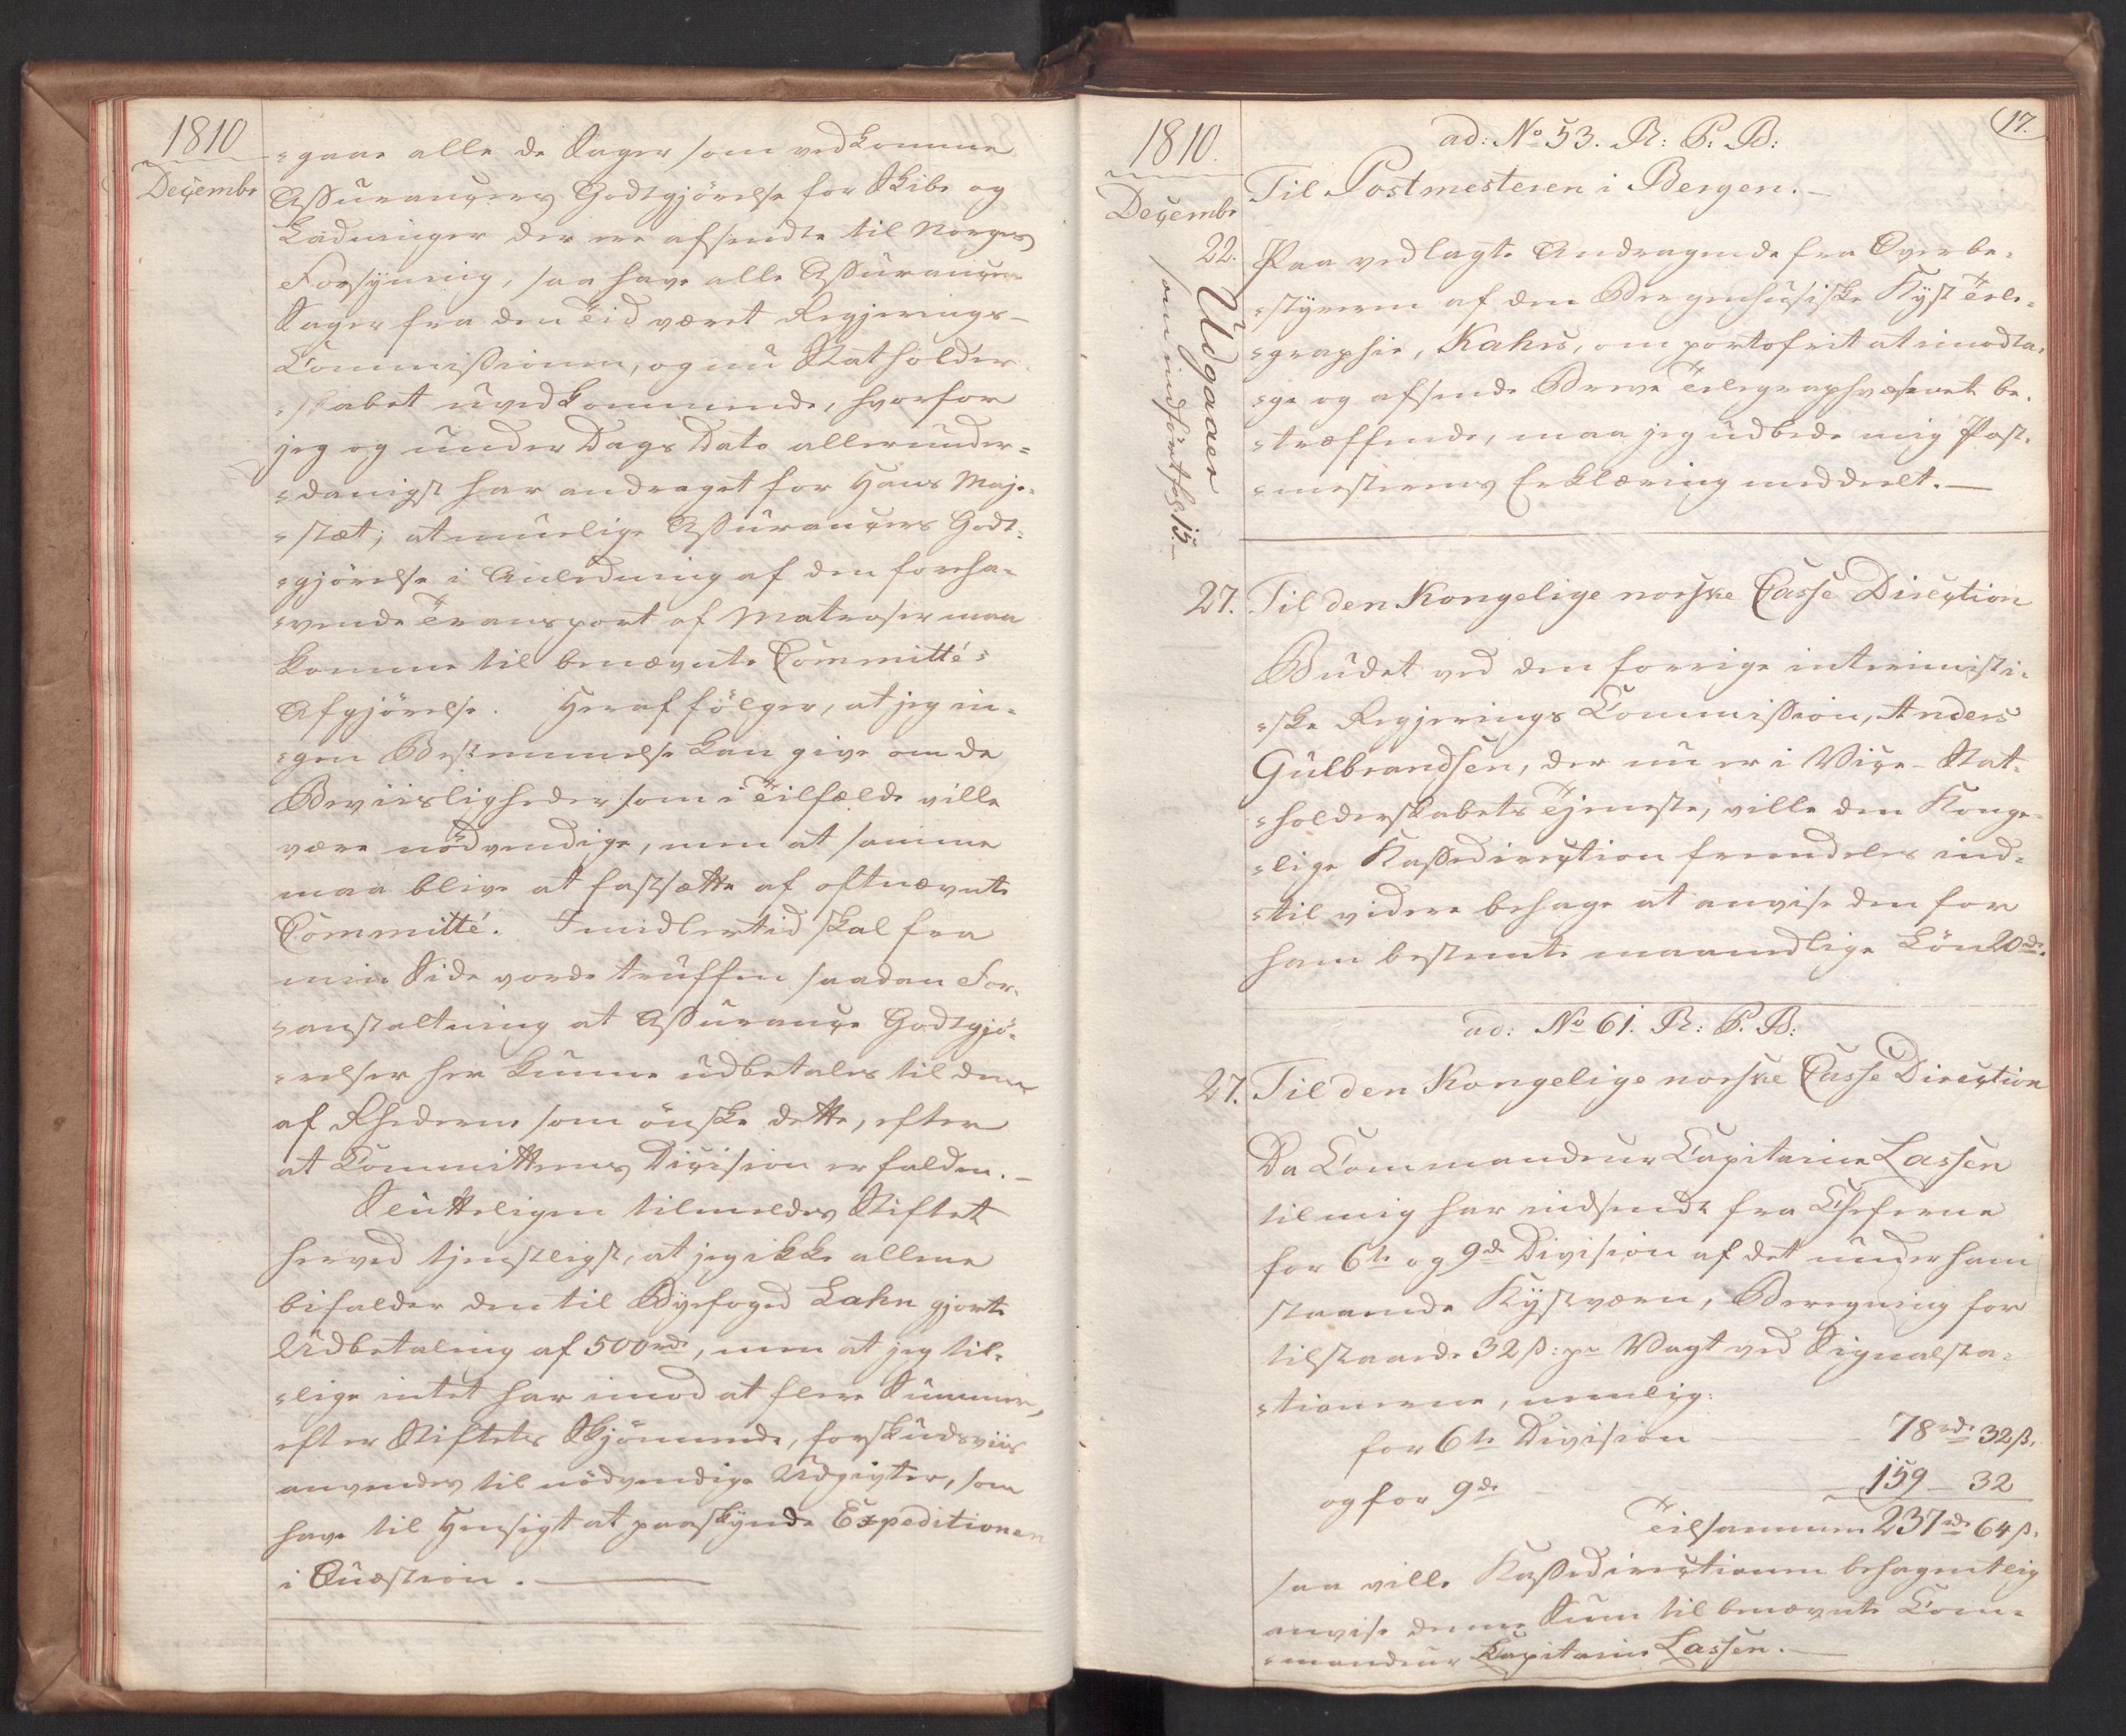 1810
Decembr
=gaae alle de Sager som vedkomme
Assurancers Godtgjörelse for Skibe og
Ladninger der ere afsendte til Norges
Forsyning, saa have alle Assurance
Sager fra den Tid været Regjerings-
Commissionen, og nu Statholder
=skabet uvedkommende, hvorfor
jeg og under Dags Dato allerunder=
=danigst har andraget for Hans Maje=
=stæt; at muelige Assurancers Godt=
=gjörelse i Anledning af den foreha=
=vende Transport af Matroser maa
komme til benævnte Committé's
Afgjörelse. Heraf fölger, at jeg in=
=gen Bestemmelse kan give om de
Beviisligheder som i Tilfælde ville
være nödvendige, men at samme
maa blive at fastsætte af oftnævnte
Committé. Imidlertid skal fra
min Side vorde truffen saadan For=
=anstaltning at Assurance Godtgjö=
=relser her kunne udbetales til dem
af Rhederne som önske dette, efter
at Committeens Dicision er falden.—
Slutteligen tilmeldes Stiftet
herved tjenstligst, at jeg ikke allene
bifalder den til Byefoged Lahn gjorte
Udbetaling af 500 rd, men at jeg til=
=lige intet har imod at flere Summer,
efter Stiftets Skjönnende, forskudsviis
anvendes til nödvendige Udgivter, som
have til Hensigt at paaskynde Expeditionen
i Quæstion.—
17.
1810.
Decembr
ad: No 53. R: P. B:
Til Postmesteren i Bergen.—
22. Paa vedlagte Andragende fra Overbe=
=styreren af den Bergenhusiske Kyst Tele=
=graphie, Kahrs, om portofrit at imodta=
=ge og afsende Breve Telegraphvæsenet be=
=træffende, maa jeg udbede mig Post=
=mesterens Erklæring meddeelt.—
Udgaaer
som indfört fol 15.—
27. Til den Kongelige norske Casse Direction
Budet ved den forrige interimisti=
=ske Regjerings Commission, Anders
Gulbrandsen, der nu er i Vice-Stat=
=holderskabets Tjeneste, ville den Konge=
=lige Kassedirection fremdeles ind=
=til videre behage at anvise den for
ham bestemte maanedlige Lön 20 rd.
ad: No 61. R: P. B:
27. Til den Kongelige norske Casse Direction
Da Commandeur Capitaine Lassen
til mig har indsendt fra Cheferne
for 6te og 9de Division af det under ham
staaende Kystværn, Beregning for
tilstaaede 32 ß: pr Vagt ved Signalsta=
=tionerne, nemlig:
for 6te Division — 78 rd. 32 ß.
og for 9de — 159 — 32
Tilsammen 237 rd. 64 ß.
saa ville Kassedirectionen behageligen
anvise denne Sum til benævnte Com=
=mandeur Kapitaine Lassen.—